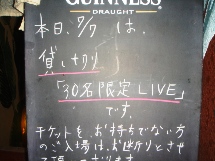 GUINNESS
DRAUGHT
本日、7/7 は、
貸し切り
「30名限定 LIVE」
です。
チケットを、お持ちでない方
のご入場は、お断りとさせ
て頂いております